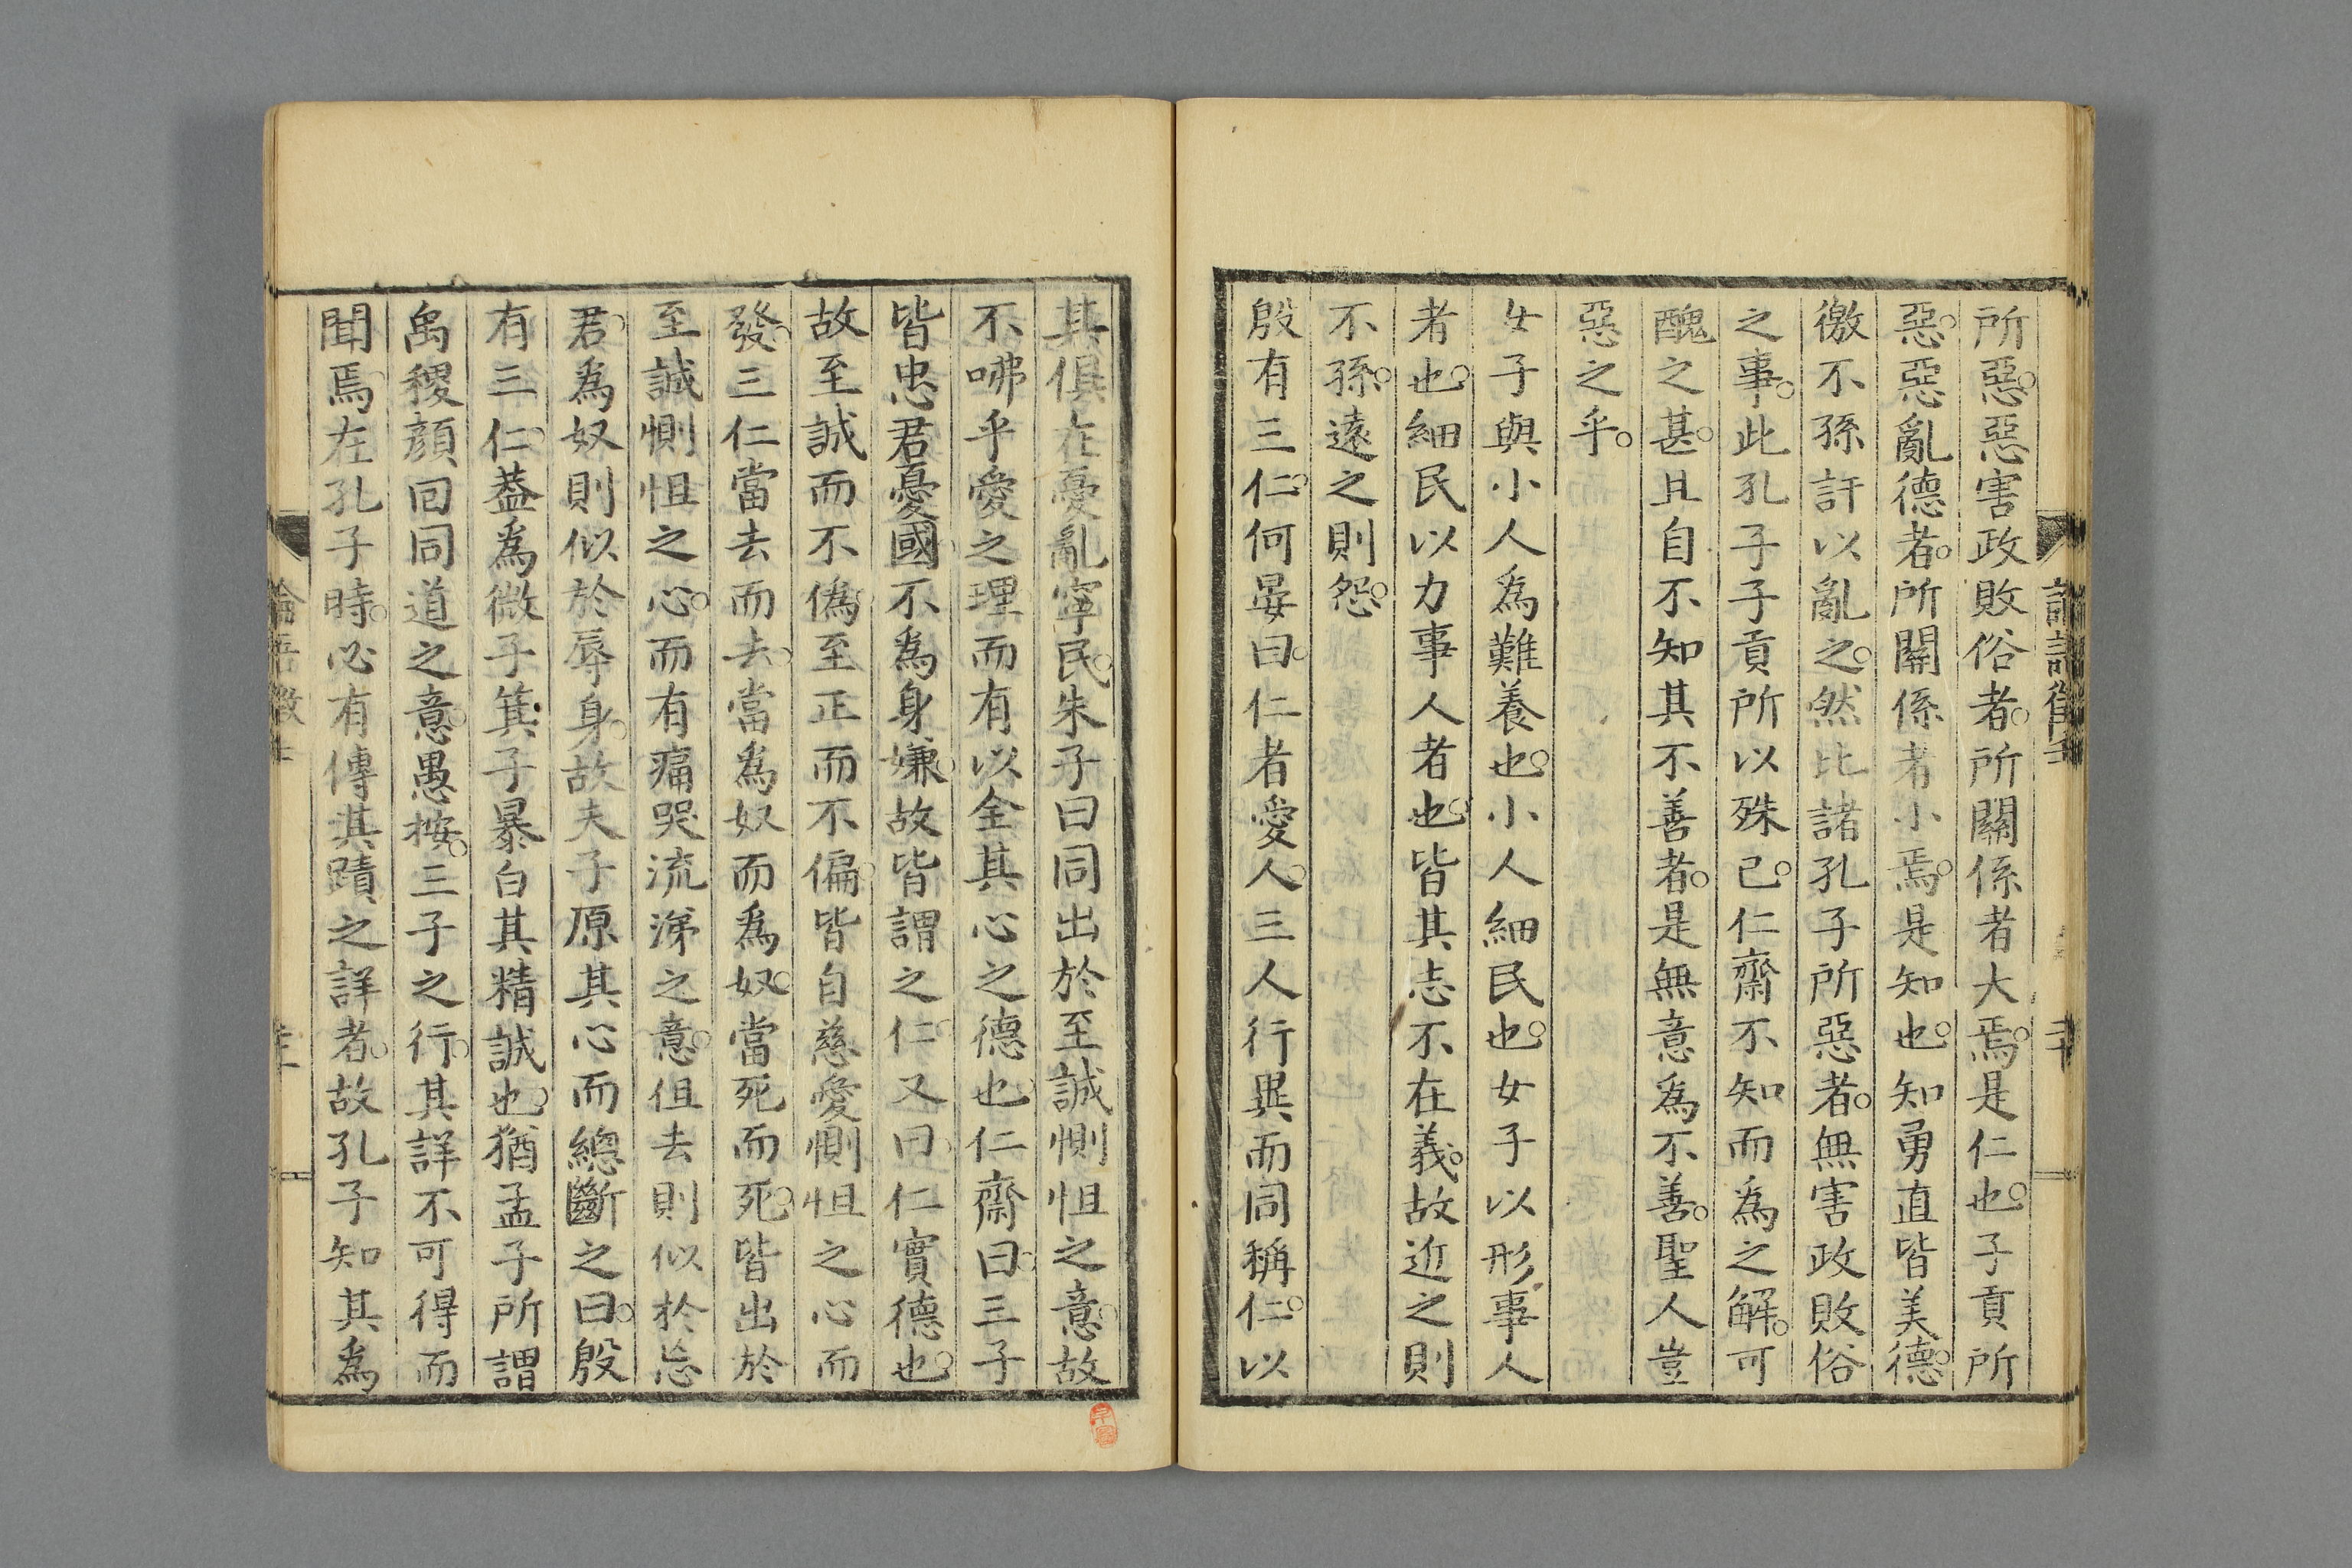 所惡惡害政敗俗者所關係者大焉是仁也子貢所
惡惡亂德者所關係者小焉是知也知勇直皆美德
徼不孫訐以亂之然比諸孔子所惡者無害政敗俗
之事此孔子子貢所以殊已仁齋不知而為之解可
醜之甚且自不知其不善者是無意為不善聖人豈
惡之乎
女子與小人為難養也小人細民也女子以形事人
者也細民以力事人者也皆其志不在義故近之則
不孫遠之則怨
殷有三仁何晏曰仁者愛人三人行異而同稱仁以
其俱在憂亂寧民朱子曰同出於至誠惻怛之意故
不咈乎愛之理而有以全其心之德也仁齋曰三子
皆忠君憂國不為身嫌故皆謂之仁又曰仁實德也
故至誠而不偽至正而不偏皆自慈愛惻怛之心而
發三仁當去而去當為奴而為奴當死而死皆出於
至誠惻怛之心而有痛哭流涕之意但去則似於忘
君為奴則似於辱身故夫子原其心而總斷之曰殷
有三仁蓋為微子箕子暴白其精誠也猶孟子所謂
禹稷顏回同道之意愚按三子之行其詳不可得而
聞焉在孔子時必有傳其蹟之詳者故孔子知其為